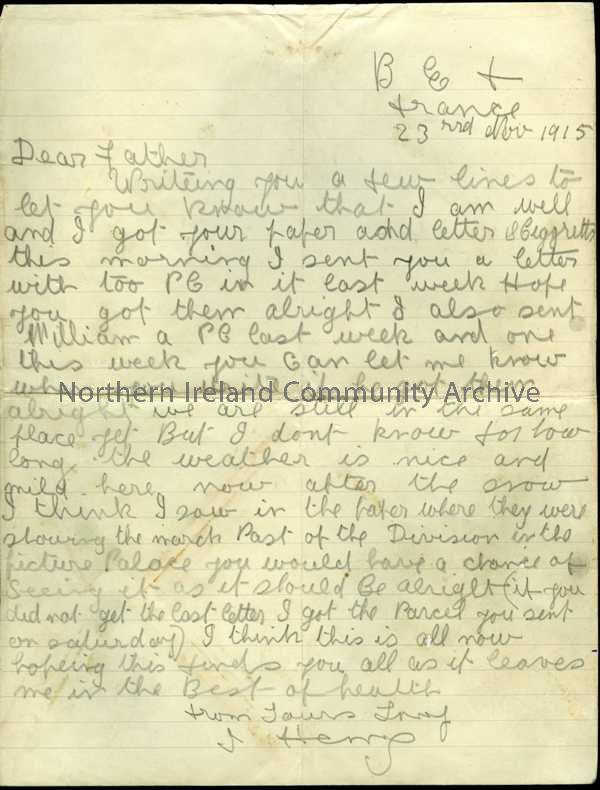 B E F
France
23 rrd Nov 1915
Dear Father
Writeing you a few lines to
let you know that I am well
and I got your paper and letter &
this morning I sent you a letter
with too PC in it last week Hope
you got them alright I also sent
William a PC last week and one
this week you can let me know
when you write if he got them
Northern Ireland Community Archive
alright we are still in the same
place yet But I dont know for how
long the weather is nice and
mild here now after the snow
I think I saw in the paper where they were
showing the march Past of the Division in the
picture Palace you would have a chance of
Seeing it as it should Be alright (if you
did not get the last letter I got the Parcel you sent
on saturday) I think this is all now
hopeing this finds you all as it leaves
me in the Best of health
from Yours Truly
J Henry